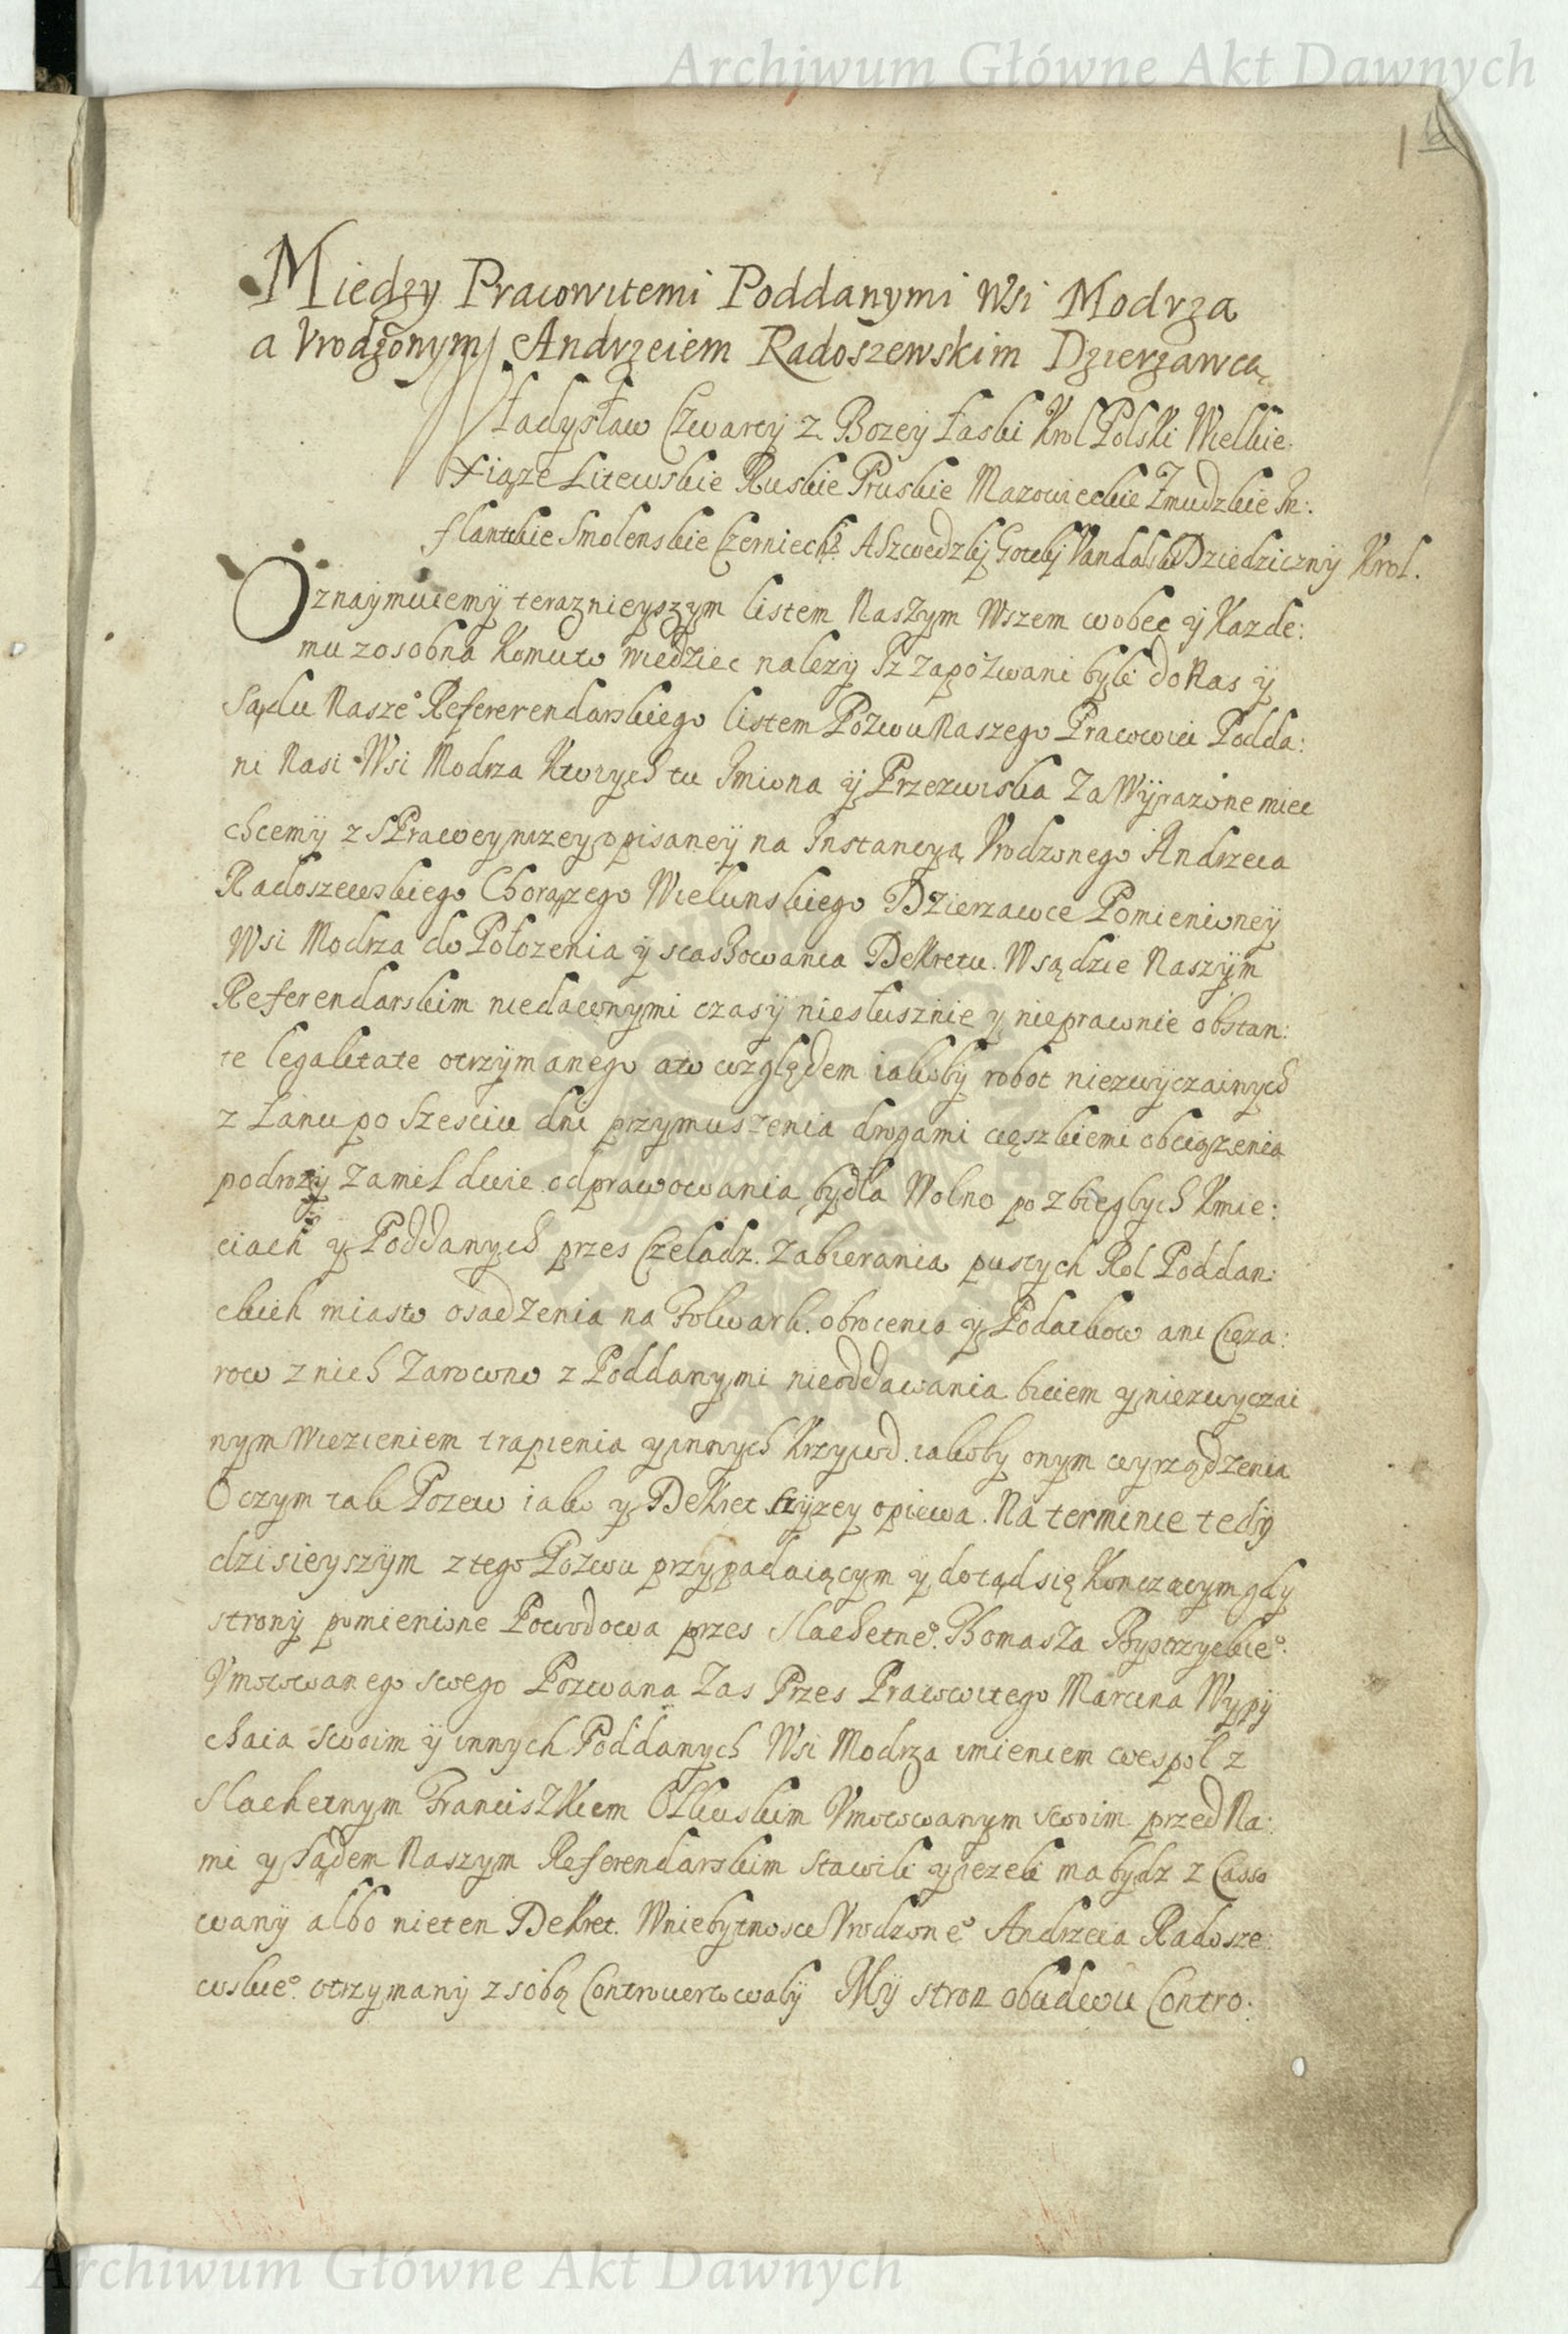 Archiwum Główne Akt Dawnych
1
Między Pracowitemi Poddanymi Wsi Modrza
a Vrodzonym Andrzeiem Radoszewskim Dzierzawcą
Władysław Czwarty z Bozey Łaski Krol Polski Wielkie
Xiąze Litewskie Ruskie Pruskie Mazowieckie Zmudzkie In:
flantskie Smolenskie Czerniech: A Szwedzky Gotsky Vandalski Dziedziczny Krol.
Oznaymuiemy teraznieyszym listem Naszym Wszem wobec y Kazde:
mu zosobna Komuto wiedziec nalezy Iz zapozwani byli do Nas y
Sądu Nasze° Refererendarskiego listem Pozwu Naszego Pracowici Podda:
ni Nasi Wsi Modrza Ktorych tu Imiona y Przezwiska Za Wyrazone miec
chcemy z SPrawey nizey opisaney na Instancyą Vrodzonego Andrzeia
Radoszewskiego Chorązego Wielunskiego Dzierzawce Pomienioney
Wsi Modrza do Połozenia y scassowania Dekretu. W sądzie Naszym
Referendarskim niedawnymi czasy niesłusznie y nieprawnie obstan:
te legalitate otrzymanego a to względem iakoby robot niezwyczainych
z Łanu po Szesciu dni przymuszenia drogami cięszkiemi obciązenia
podrozy za mil dwie odprawowania bydła Wolno po zbiegłych Kmie:
ciach y Poddanych przes Czeladz. Zabierania pustych Rol Poddan:
ckich miasto osadzenia na Folwark. obrocenia y Podatkow ani Cięza:
row z nich Zarowno z Poddanymi nieoddawania biciem y niezwyczai
nym Wiezieniem trapienia y innych Krzywd. iakoby onym wyrządzenia
O czym tak Pozew iako y Dekret szyrzey opiewa. Na terminie tedy
dzisieyszym z tego Pozwu przypadaiącym y dotąd się Konczącym gdy
strony pomienione Powodowa przes Slachetne°. Thomasza Bystrzyckie°.
Vmocowanego swego Pozwana Zas Przes Pracowitego Marcina Wypy
chaia swoim y innych Poddanych Wsi Modrza imieniem wespoł z
Slachetnym Franciszkiem Olkuskim Vmocowanym swoim przed Na:
mi y Sądem Naszym Referendarskim stawili y iezeli ma bydz z Casso
wany albo nie ten Dekret. W niebytnosci Vrodzone° Andrzeia Radosze:
wskie°. otrzymany z sobą Controwertowaly My stron obudwu Contro:
Archiwum Główne Akt Dawnych